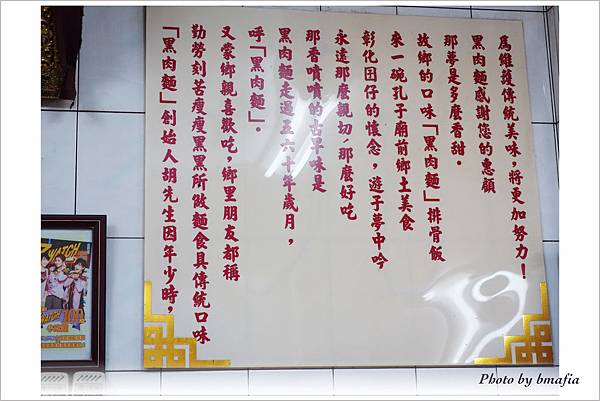 「黑肉麵」創始人胡先生因年少時，
勤勞刻苦瘦瘦黑黑所做麵食具傳統口味
又蒙鄉親喜歡吃，鄉里朋友都稱
呼「黑肉麵」。
黑肉麵走過五六十年歲月，
那香噴噴的古早味是
永遠那麼親切，那麼好吃
彰化囝仔的懷念，遊子夢中吟
來一碗孔子廟前鄉土美食
故鄉的口味「黑肉麵」排骨飯
那夢是多麼香甜。
黑肉麵感謝您的惠顧
爲維護傳統美味，將更加努力！
WATCH
Photo by bmafia